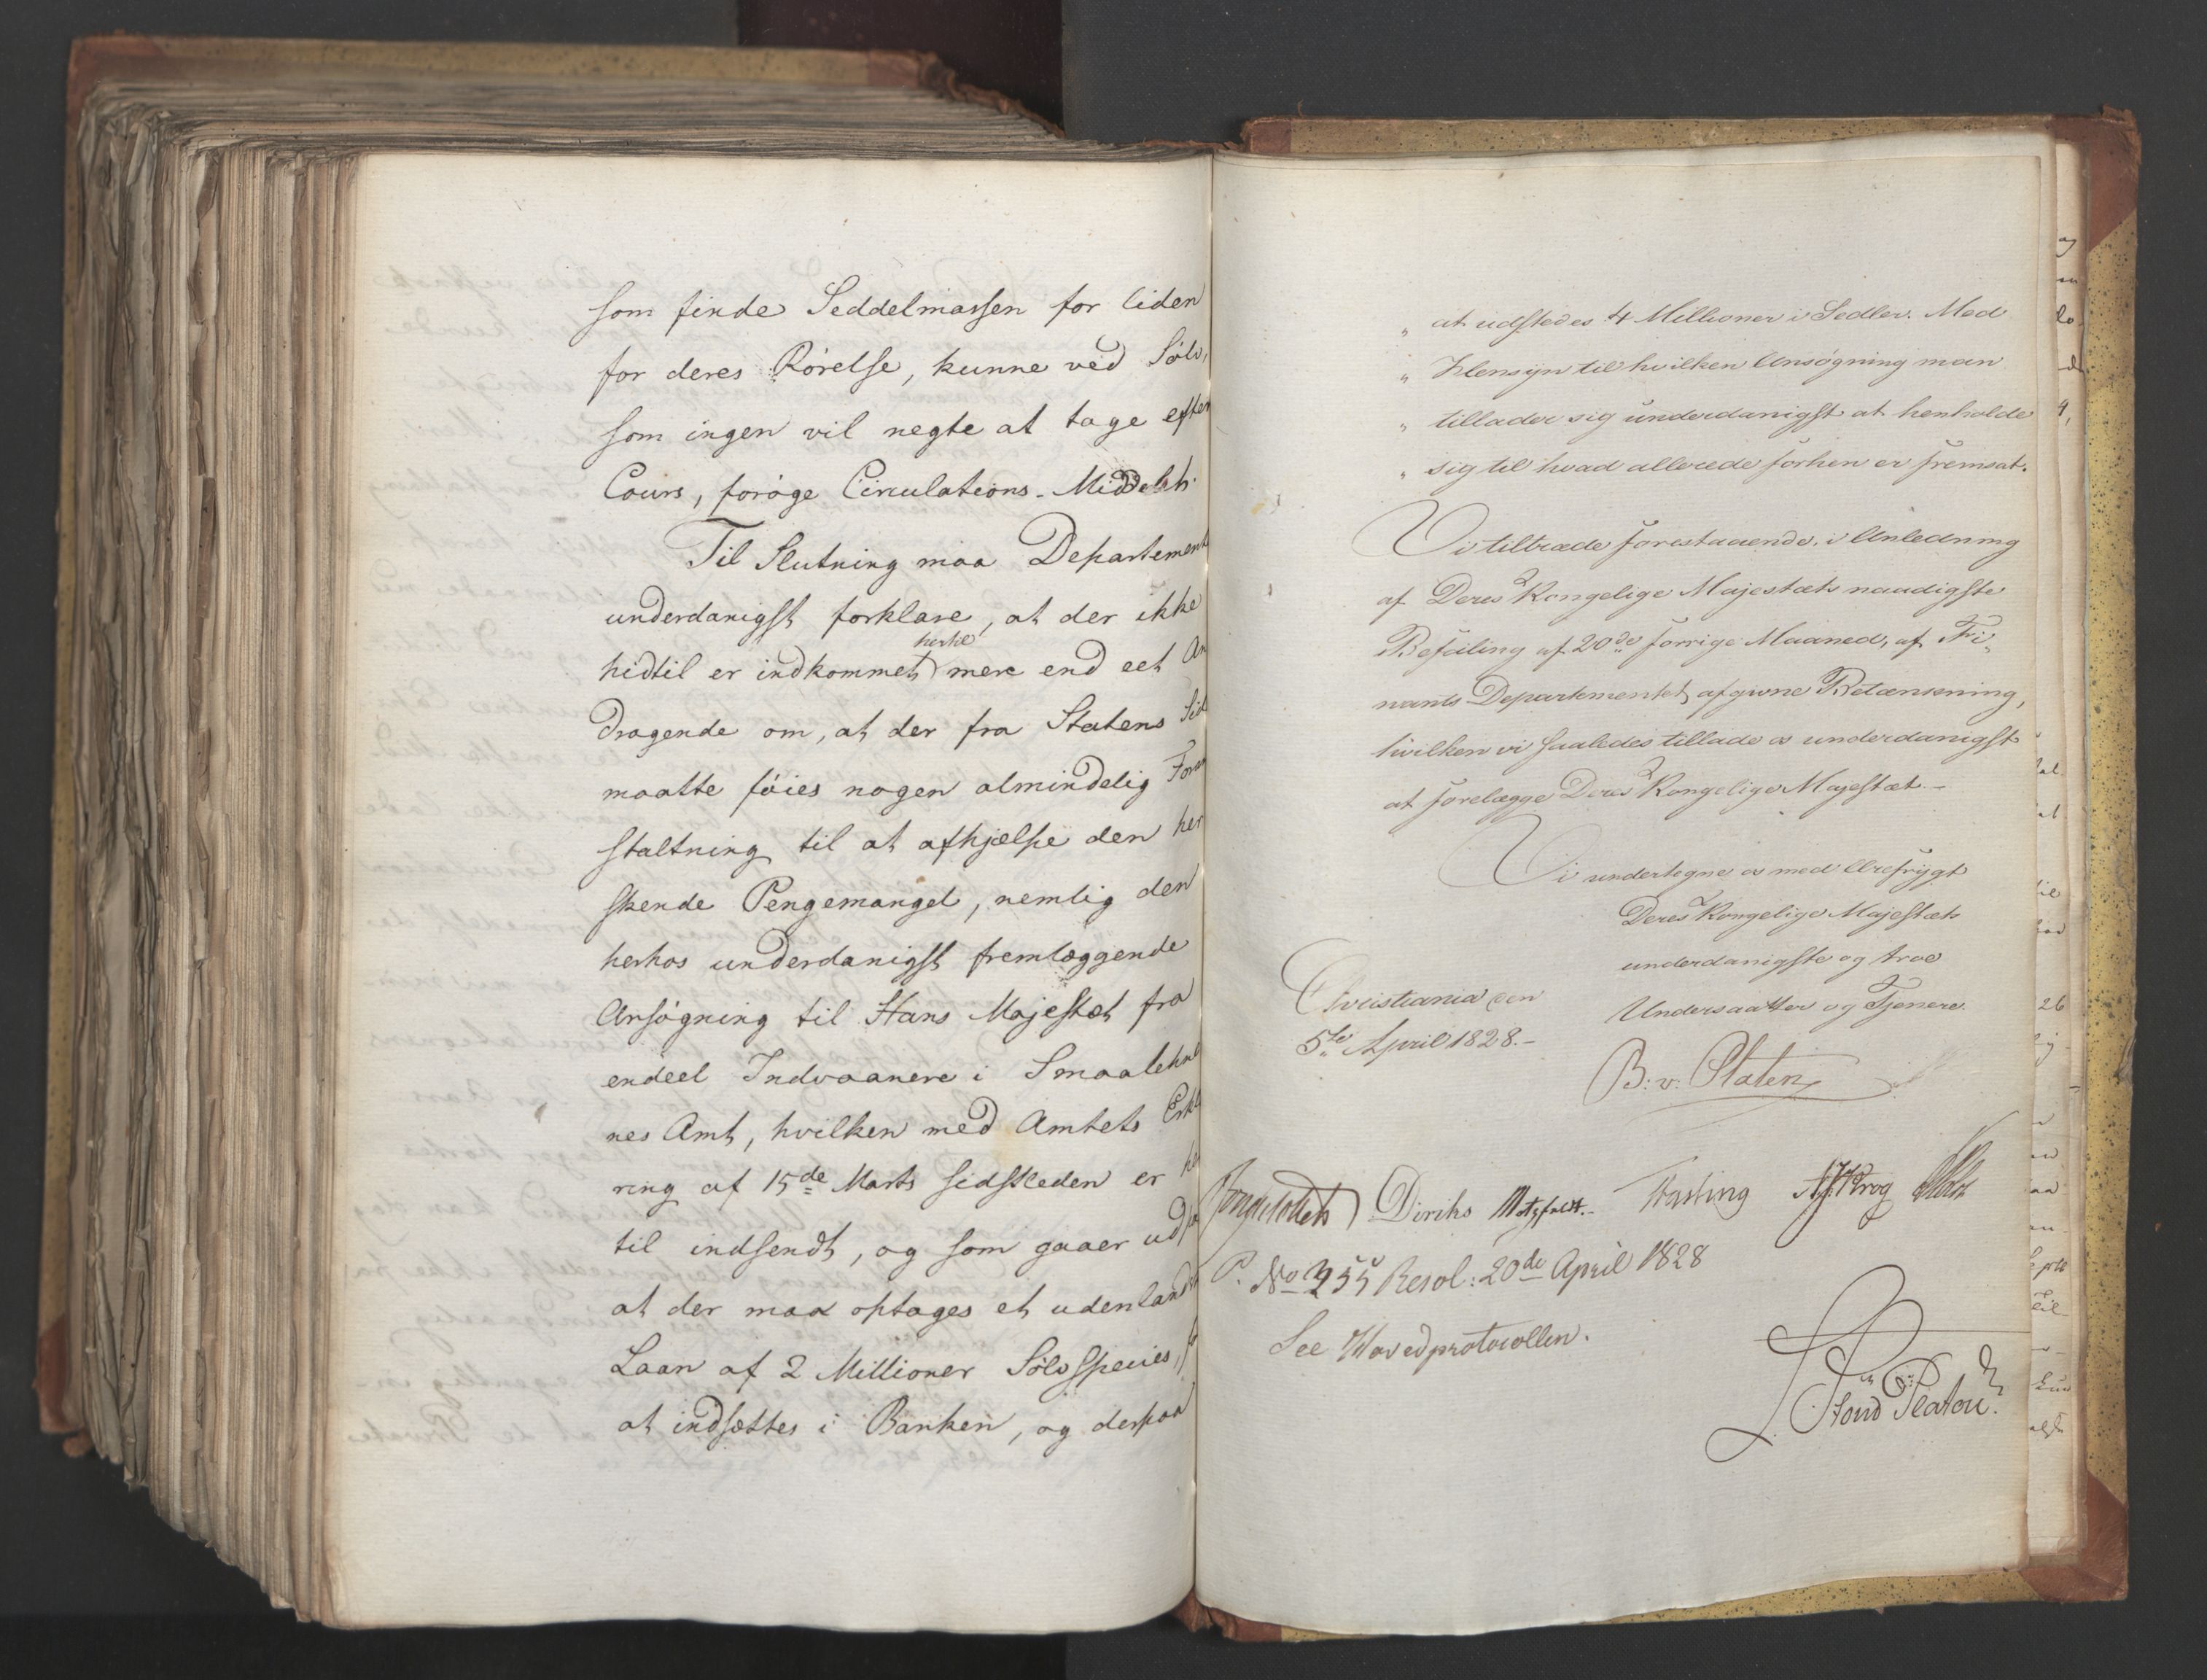 som finde Seddelmassen for liden
for deres Rørelse, kunne ved Sølv,
som ingen vil negte at tage efter
Cours, forøge Circulations-Middelet.
Til Slutning maa Departement
underdanigst forklare, at der ikke
hertil
hidtil er indkommet mere end eet An
dragende om, at der fra Statens Sid
maatte føies nogen almindelig Foran
staltning til at afhjelpe den her
skende Pengemangel, nemlig den
herhos underdanigst fremlæggende
Ansøgning til Hans Majestæt fra
endeel Indvaanere i Smaalehne
nes Amt, hvilken med Amtets Erklæ
ring af 15de Marts sidstleden er
til indsendt, og som gaaer ud paa
at der maa optages et udenlandsk
Laan af 2 Millioner Sølvspecies,
at indsættes i Banken, og derpaa
„ at udstedes 4 Millioner i Sedler. Med
„ Hensyn til hvilken Ansøgning man
„ tillader sig underdanigst at henholde
„ sig til hvad allerede forhen er fremsat.
Vi tiltræde forestaaende, i Anledning
af Deres Kongelige Majestæts naadigste
Befaling af 20de forrige Maaned, af Fi-
nants Departementet afgivne Betænkning,
hvilken vi saaledes tillade os underdanigst
at forelægge Deres Kongelige Majestæt.-
Vi undertegne os med Ærefrygt
Deres Kongelige Majestæts
underdanigste og troe
Undersaatter og Tjenere.
Christiania den
5te April 1828.-
B: v: Platen
Diriks Motzfeldt. Fasting Krog Holst
P. No 255 Resol: 20de April 1828
See Hovedprotocollen.
Stoud Platou